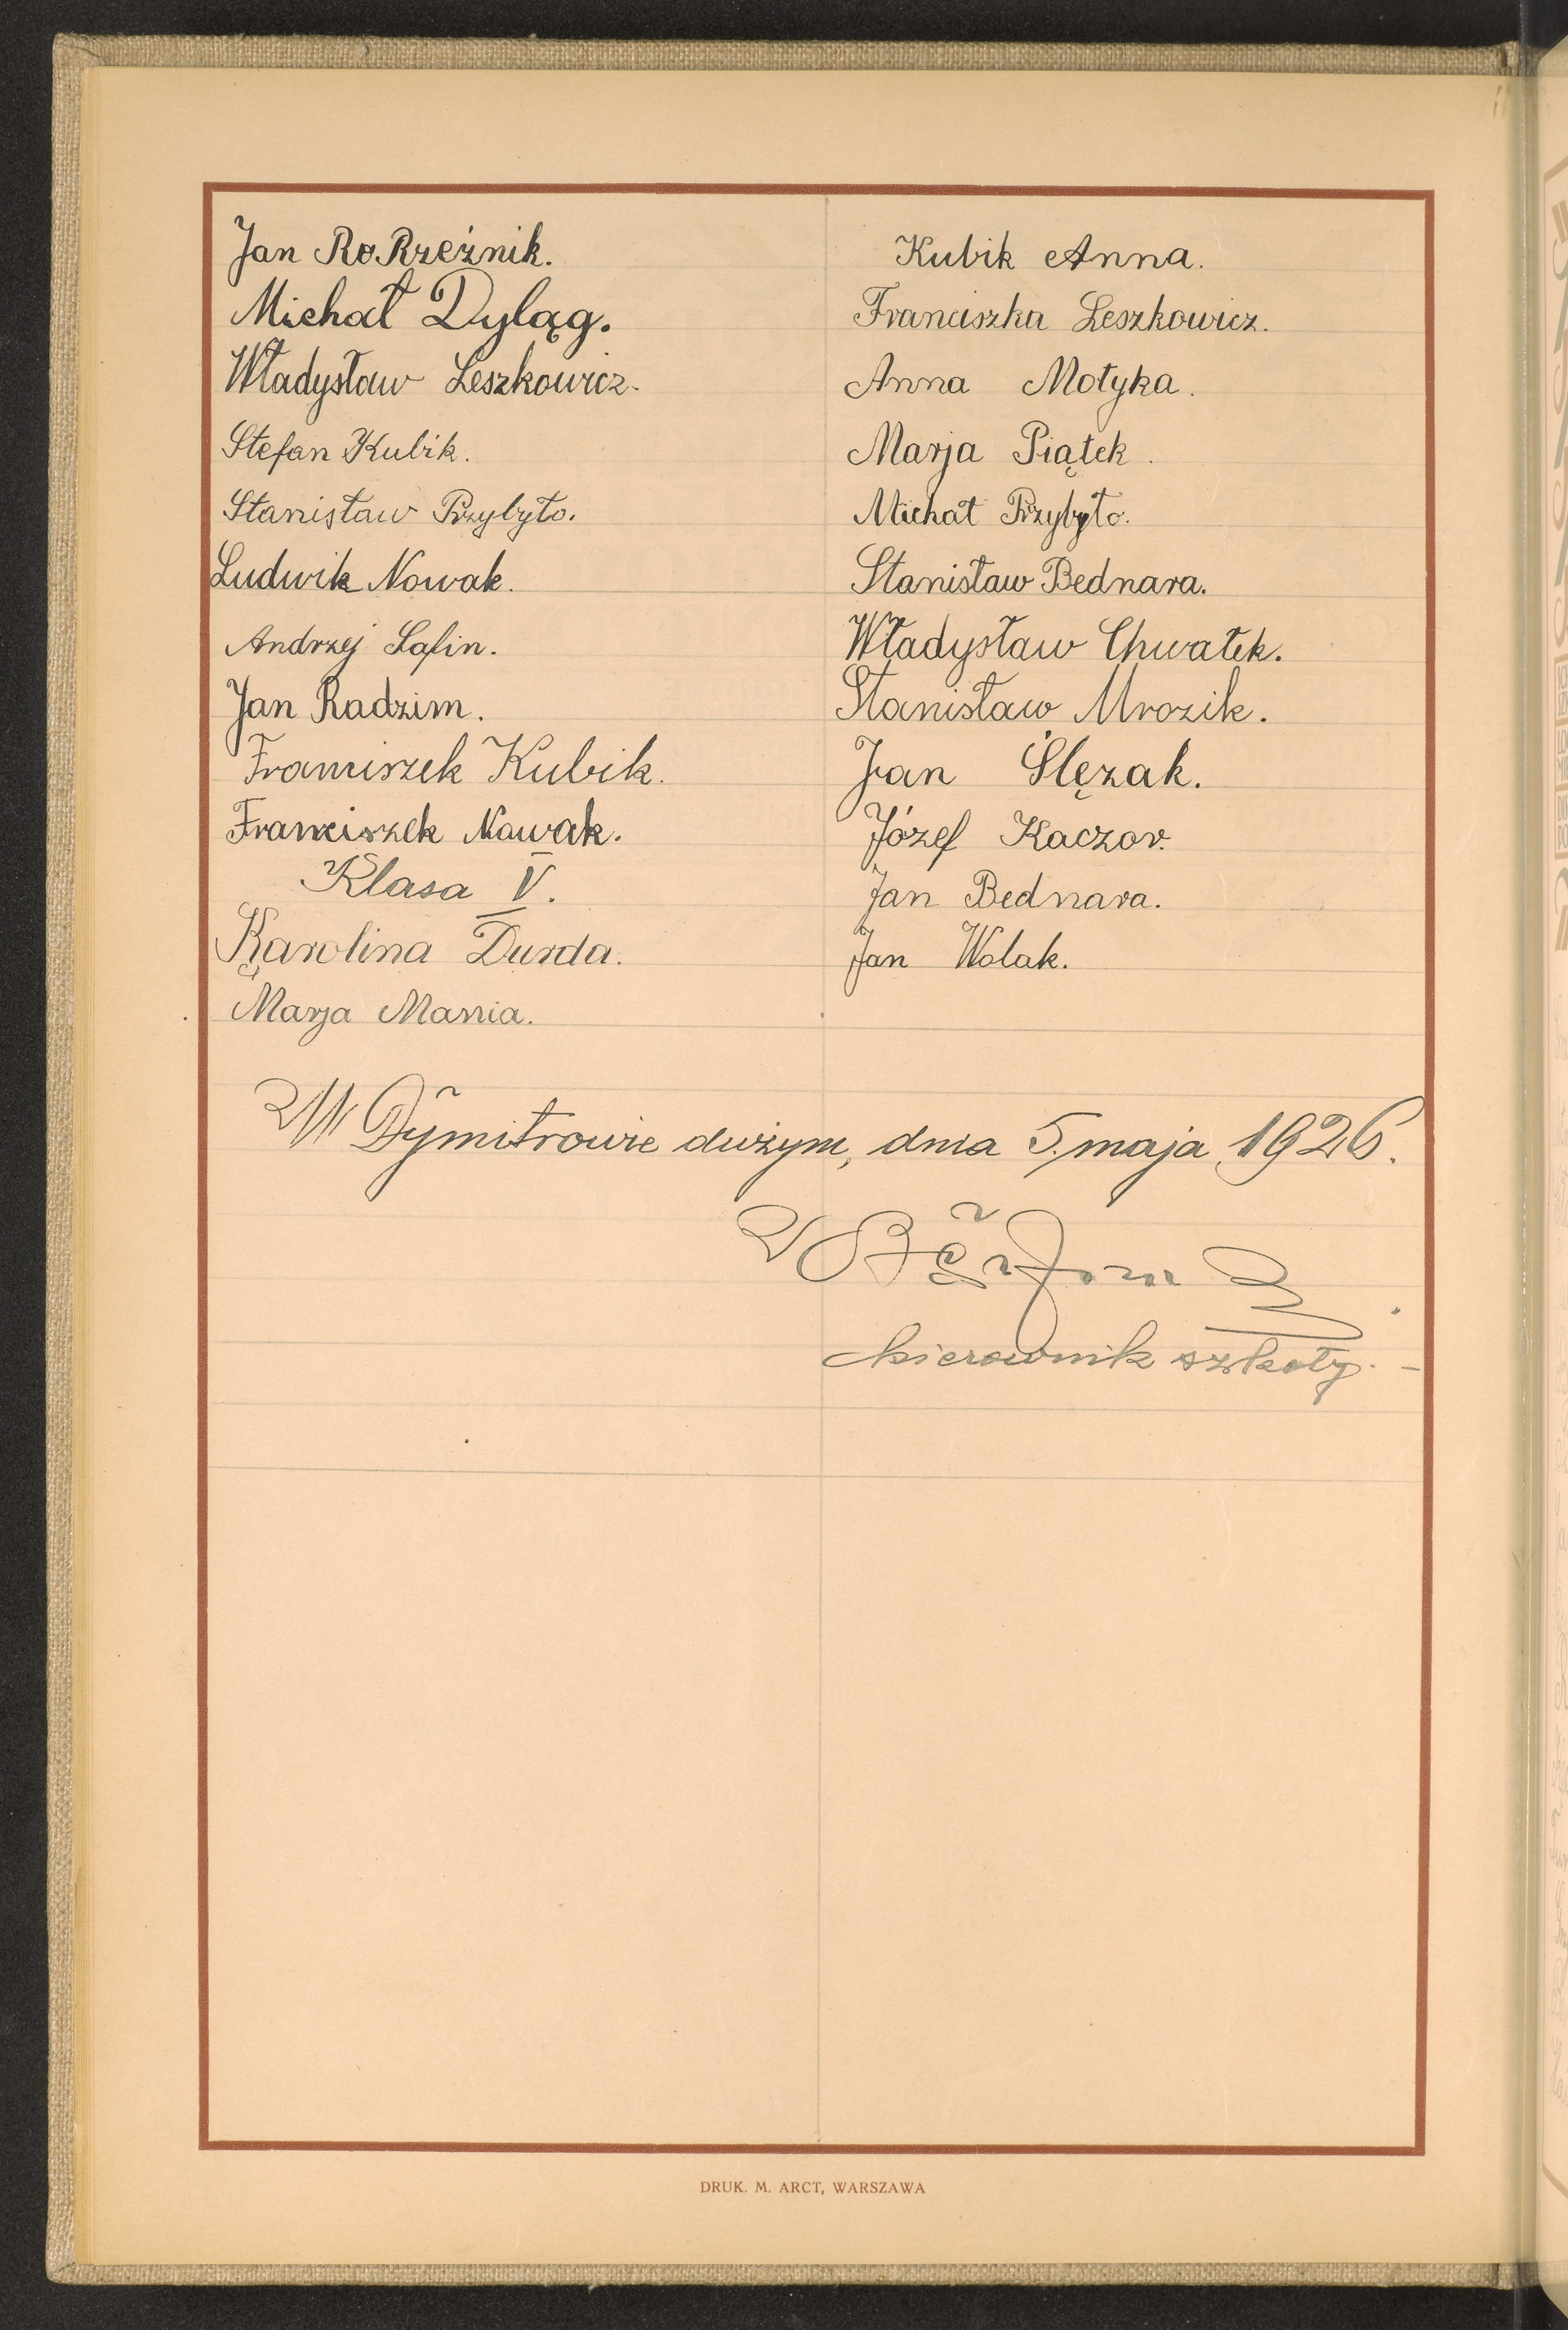 Jan Ro. Rzeźnik.
Michał Dyląg.
Władysław Leszkowicz.
Stefan Kubik.
Stanisław Przybyło.
Ludwik Nowak.
Andrzej Safin.
Jan Radzim.
Franciszek Kubik.
Franciszek Nowak.
Klasa V.
Karolina Durda.
Marja Mania.
Kubik Anna.
Franciszka Leszkowicz.
Anna Motyka.
Marja Piątek.
Michał Przybyło.
Stanisław Bednara.
Władysław Chwałek.
Stanisław Mrozik.
Jan Ślęzak.
Józef Kaczor.
Jan Bednara.
Jan Wolak.
W Dymitrowie dużym, dnia 5. maja 1926.
kierownik szkoły. -
DRUK. M. ARCT, WARSZAWA